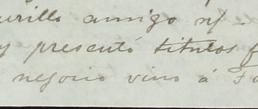 urillo amigo y/.
y presentó titulos f
negocio vino á Fa